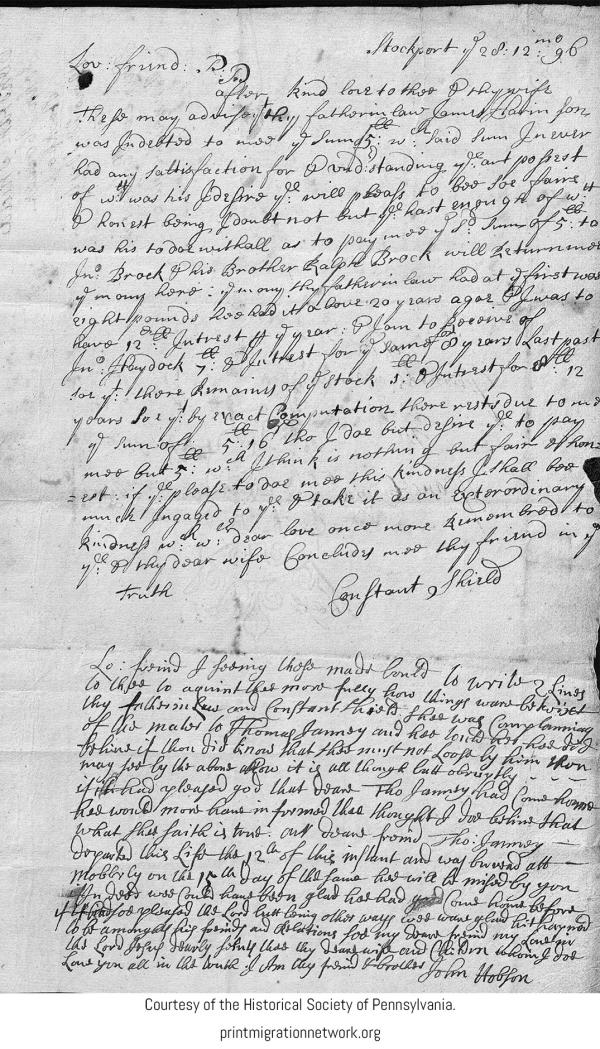 Stockport ye 28: 12 mo 96
Lov: friend: P. P.
after kind love to thee & thy wife
these may advise thy father in law James Harrison
was Indebted to mee ye Sum 5 ll: wch said Sum I never
had any sattisfaction for & understanding yt art possest
of wt was his I desire yt will please to bee soe faire
& honest being I doubt not but yt hast enough of wt
was his to doe withall as to pay mee ye sd Sum of 5 ll: to
Jno Brock & his Brother Ralph Brock will Return mee
ye mony here: ye mony thy father in law had at ye first was
eight pounds hee had it above 20 years agoe & I was to
have 12 Intrest ye year: & I am to Receive of
Jno Haydock 7 ll: & Intrest for ye same for 8 years Last past
soe yt there Remains of ye Stock 1: & Intrest for 12
years soe yt by exact Computation there rests due to me
ye Sum of 5: 16 tho I doe but desire ye to pay
mee but 5: wch I think is nothing but fair & hon=
=est: if ye please to doe mee this kindness I shall bee
much Ingaged to ye & take it as an extorordinary
kindness wth wch dear love once more Remembred to
ye & thy dear wife Concludes mee thy friend in ye
truth Constant Shield
Lo: freind I seeing these made bould to write 2 Lines
to thee to aquint thee more fully how things ware betwixt
thy father in Law and Constant Shield Shee was Complaining
of the mater to Thomas Janney and hee tould her hee did
beleive if thou did know that shee must not Loose by him thou
may see by the above how it is all though butt
if it had pleased god that deare Tho Janney had Come home
hee would more have informed thee thought I doe beleive that
what shee saith is true. our deare freind Tho: Janney
departed this Life the 12th of this instant and was buread att
mobberly on the 15th day of the same hee will be mised by you
Indeed wee Could have been glad hee had Come home before
if had soe pleased the Lord butt being other ways wee ware glad hit hapned
to be amongst his freinds and Relations soe my deare freind my Love in
the Lord Jesus dearly salutes thee thy deare wife and Children whom I doe
Love you all in the truth I Am thy freind & brother John Hobson
Courtesy of the Historical Society of Pennsylvania.
printmigrationnetwork.org